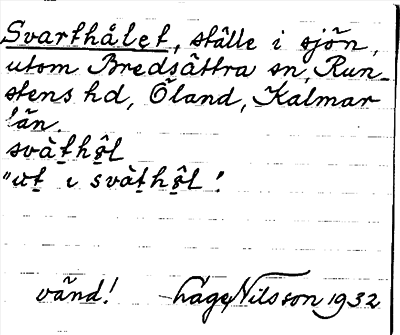 Svarthålet, ställe i sjön,
utom Bredsättra sn, Run-
stens hd, Öland, Kalmar
län.
svàt̠hə̂l
"ut̠ i svàt̠hə̂l!
vänd! Håge Nilsson 1932